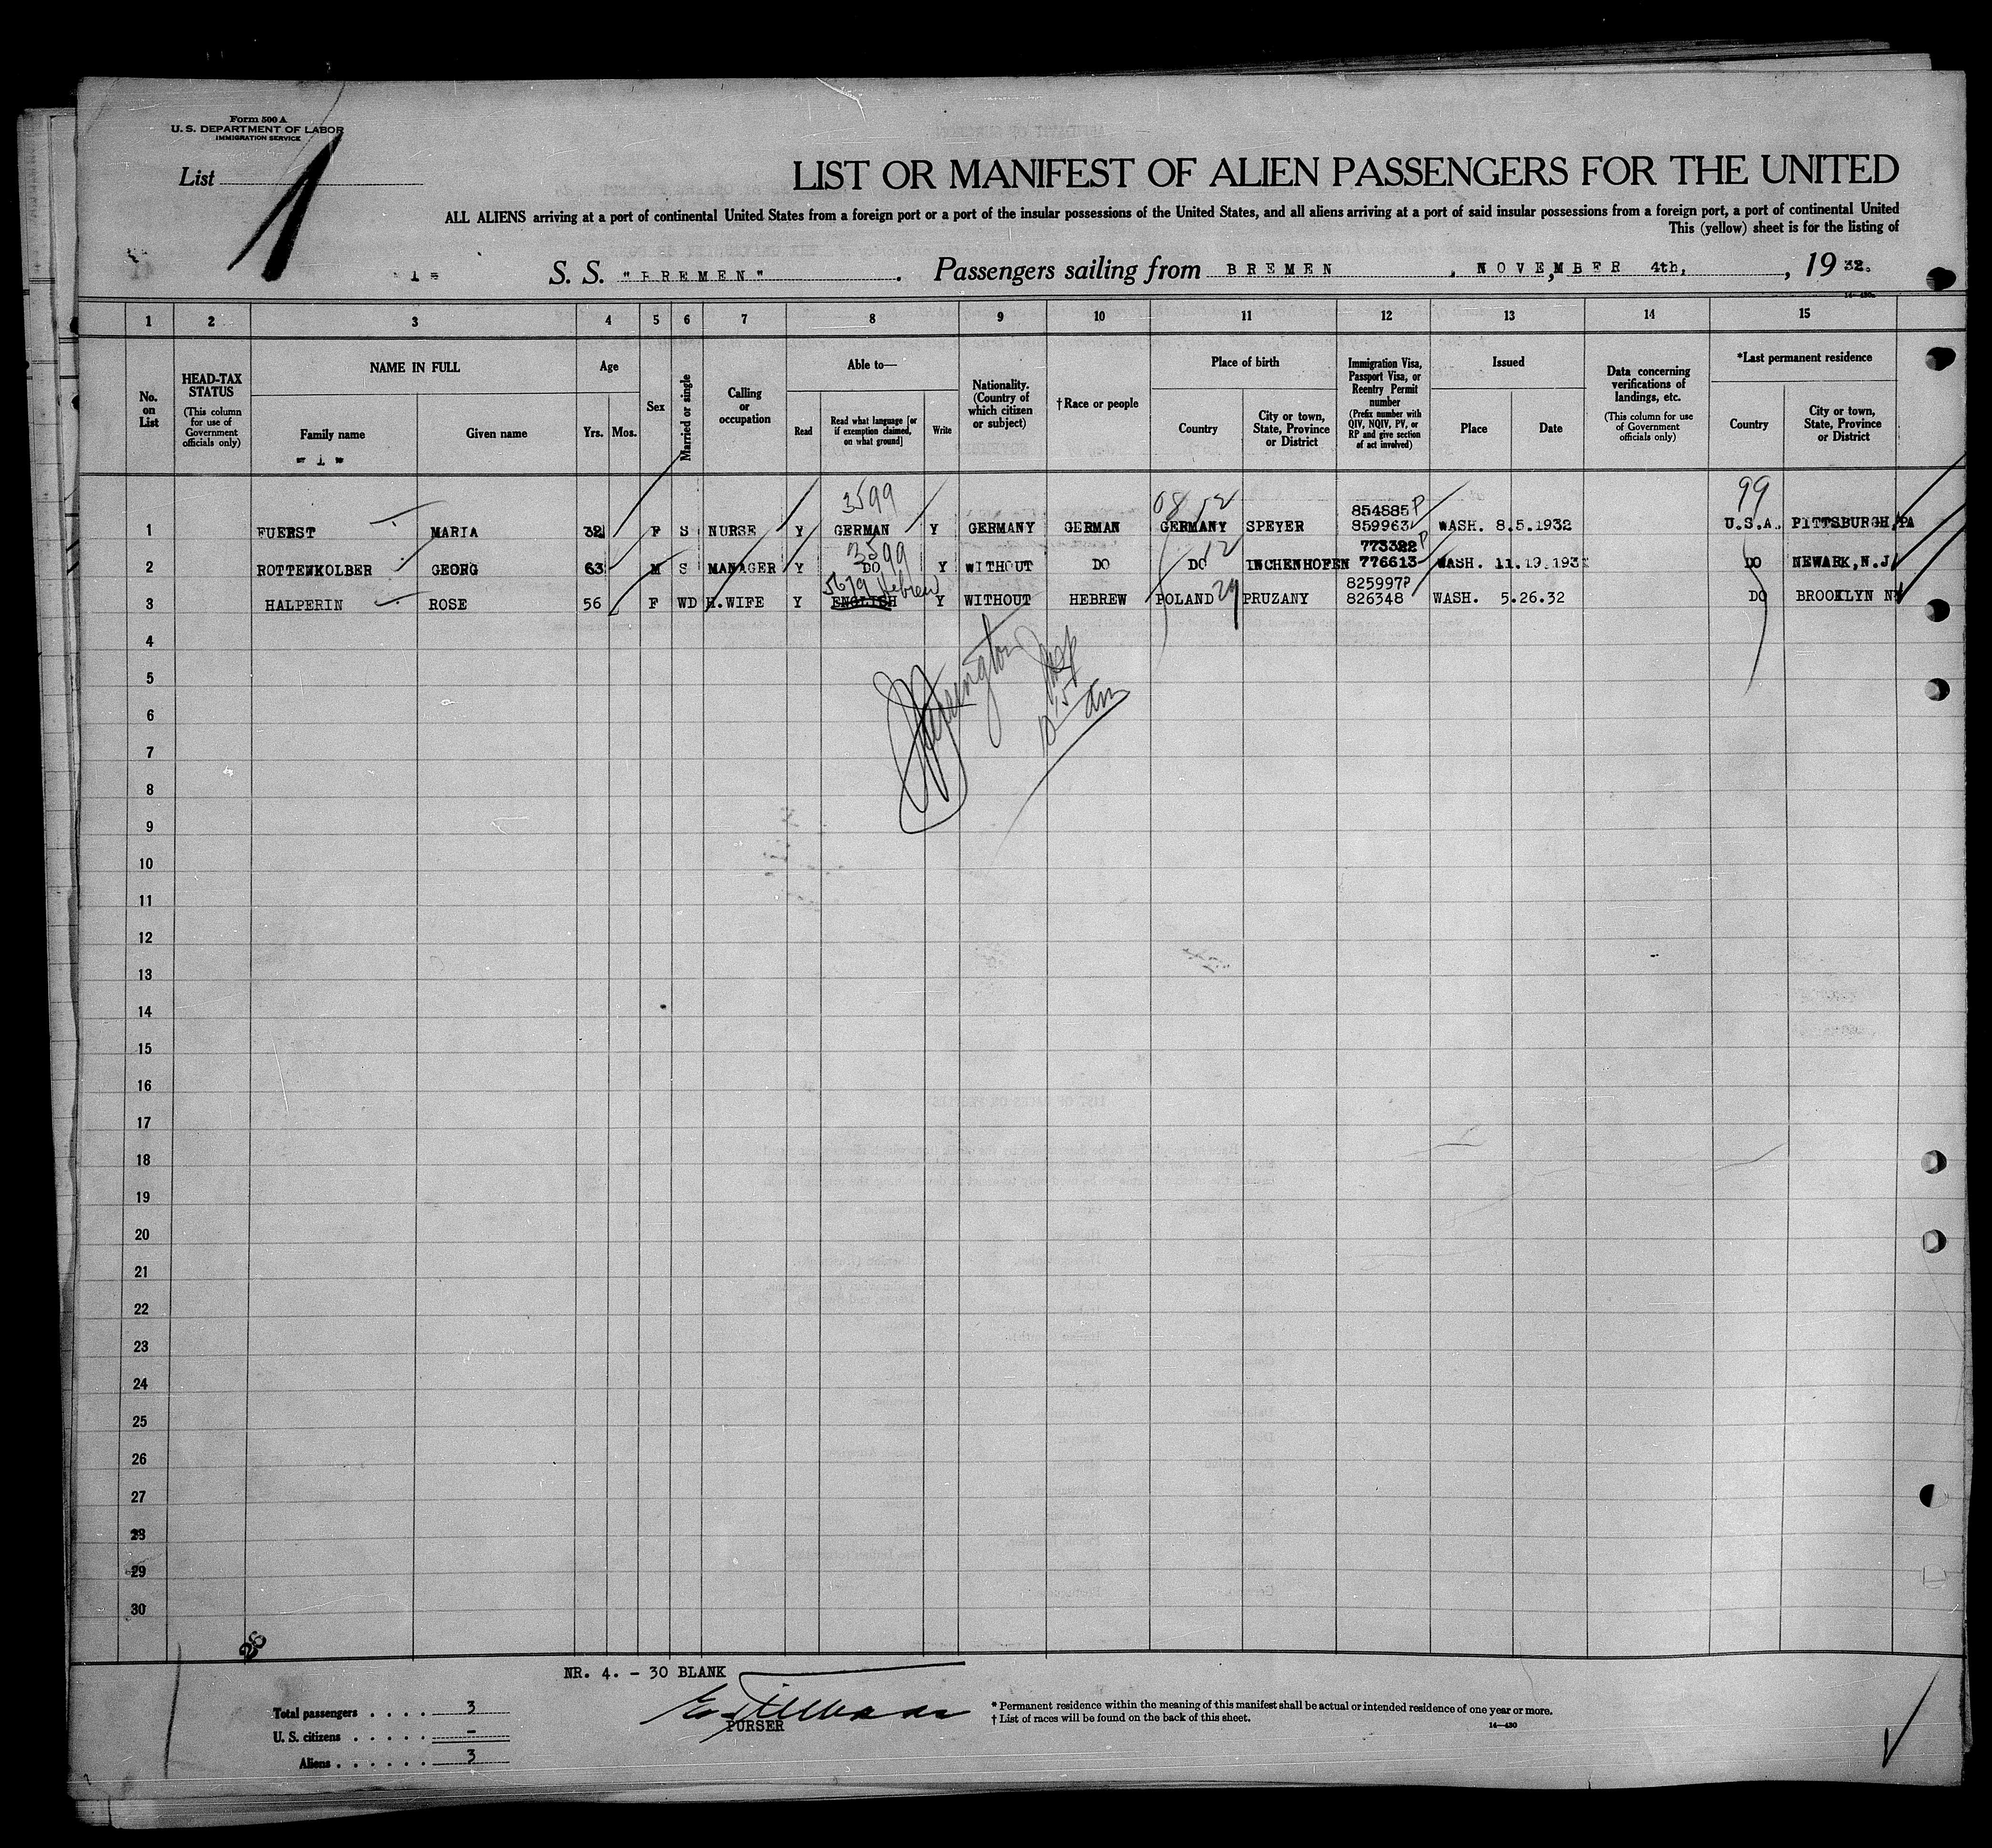 Form 500 A
U. S. DEPARTMENT OF LABOR
IMMIGRATION SERVICE
List 1
LIST OR MANIFEST OF ALIEN PASSENGERS FOR THE UNITED
ALL ALIENS arriving at a port of continental United States from a foreign port or a port of the insular possessions of the United States, and all aliens arriving at a port of said insular possessions from a foreign port, a port of continental United
This (yellow) sheet is for the listing of
- 1 - S. S. "BREMEN". Passengers sailing from BREMEN, NOVEMBER 4th, , 19 32.
1 2 3 4 5 6 7 8 9 10 11 12 13 14 15
No. on List
HEAD-TAX STATUS (This column for use of Government officials only)
NAME IN FULL
Family name
- 1 -
Given name
Age
Yrs. Mos.
Sex
Married or single
Calling or occupation
Able to—
Read
Read what language [or if exemption claimed, on what ground]
Write
Nationality. (Country of which citizen or subject)
†Race or people
Place of birth
Country
City or town, State, Province or District
Immigration Visa, Passport Visa, or Reentry Permit number (Prefix number with QIV, NQIV, PV, or RP and give section of act involved)
Issued
Place
Date
Data concerning verifications of landings, etc. (This column for use of Government officials only)
*Last permanent residence
Country
City or town, State, Province or District
3599 08 12 854885 P 99
1 FUERST MARIA 32 F S NURSE Y GERMAN Y GERMANY GERMAN GERMANY SPEYER 859963 WASH. 8.5.1932 U.S.A. PITTSBURGH, PA
3599 12 773322 P
2 ROTTENKOLBER GEORG 63 M S MANAGER Y DO Y WITHOUT DO DO INCHENHOFEN 776613 WASH. 11.19.193 DO NEWARK, N.J
5679 Hebrew 825997P
3 HALPERIN ROSE 56 F WD H.WIFE Y ENGLISH Y WITHOUT HEBREW POLAND 29 PRUZANY 826348 WASH. 5.26.32 DO BROOKLYN N
4
5
6
10 15 am
7
8
9
10
11
12
13
14
15
16
17
18
19
20
21
22
23
24
25
26
27
28
29
30
26
NR. 4. - 30 BLANK
PURSER
Total passengers . . . . 3
U. S. citizens . . . . . -
Aliens . . . . . . 3
* Permanent residence within the meaning of this manifest shall be actual or intended residence of one year or more.
† List of races will be found on the back of this sheet.
14—430